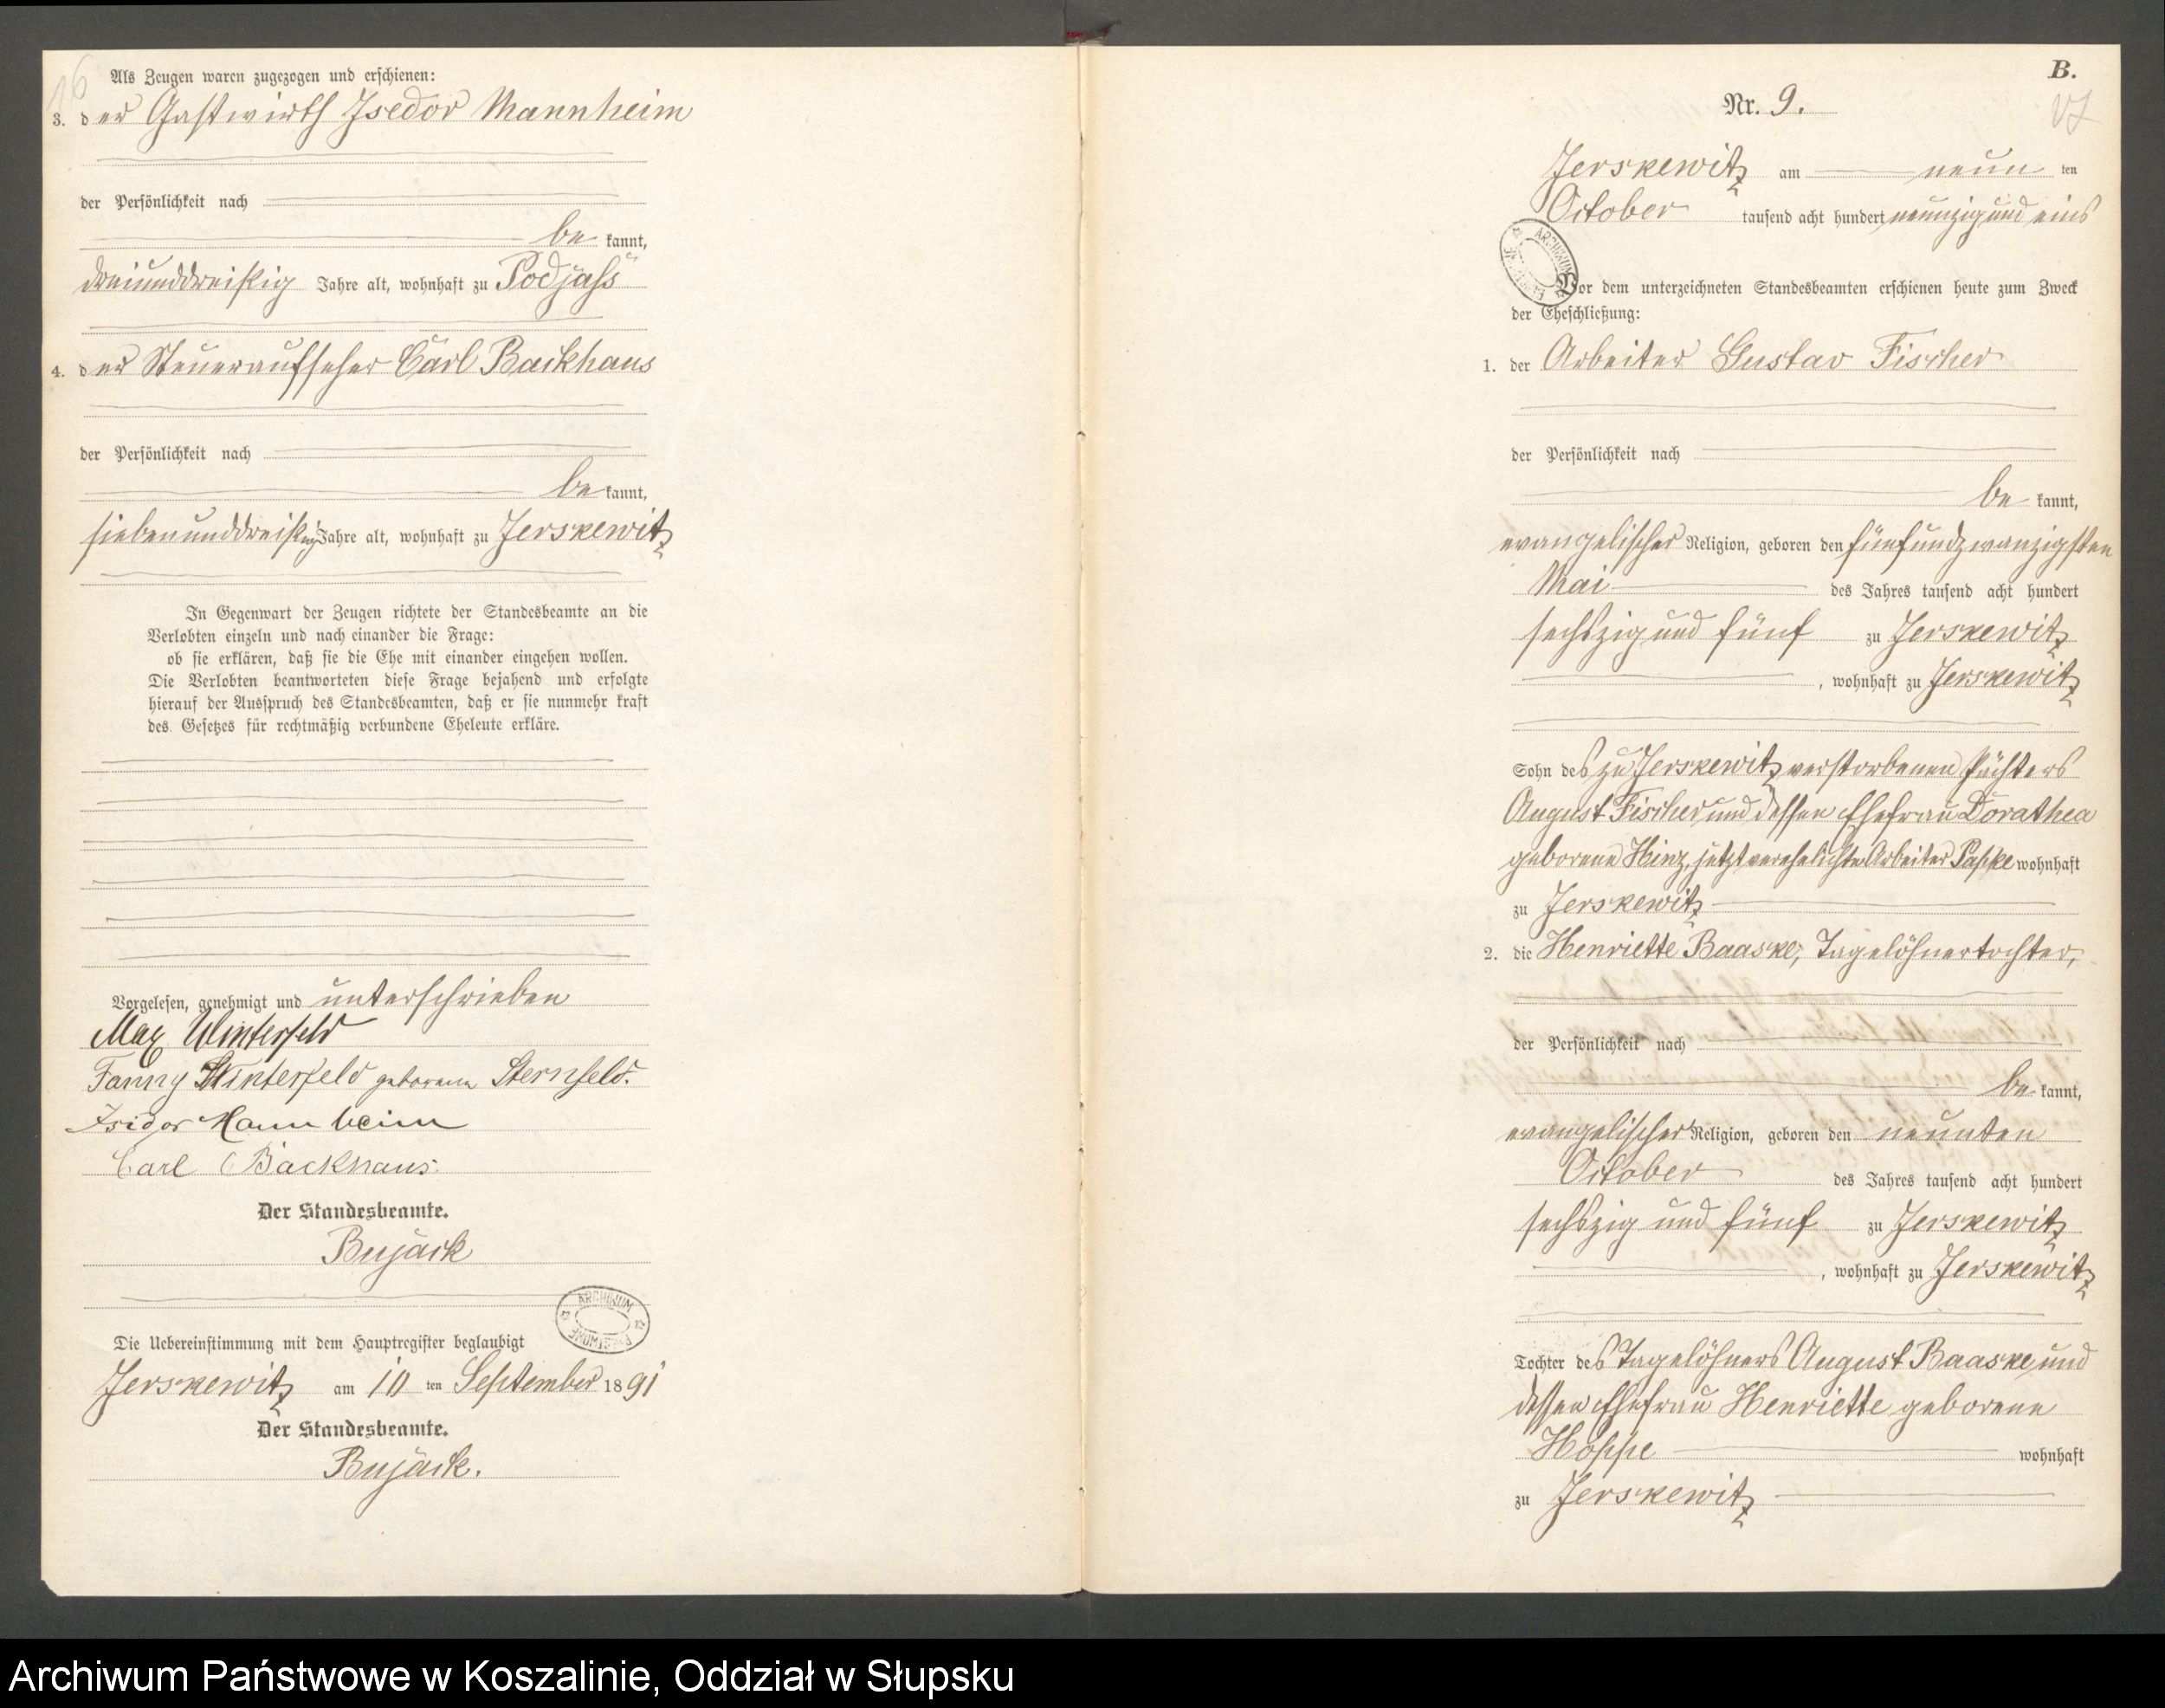 16
Als Zeugen waren zugezogen und erschienen:
3. der Gastwirth Isedor Mannheim
der Persönlichkeit nach
be kannt,
dreiunddreißig Jahre alt, wohnhaft zu Podjaß
4. der Steueraufseher Carl Backhaus
der Persönlichkeit nach
be kannt,
siebenunddreißig Jahre alt, wohnhaft zu Jerskewitz
In Gegenwart der Zeugen richtete der Standesbeamte an die
Verlobten einzeln und nach einander die Frage:
ob sie erklären, daß sie die Ehe mit einander eingehen wollen.
Die Verlobten beantworteten diese Frage bejahend und erfolgte
hierauf der Ausspruch des Standesbeamten, daß er sie nunmehr kraft
des Gesetzes für rechtmäßig verbundene Eheleute erkläre.
Vorgelesen, genehmigt und unterschrieben
Max Winterfeld
Fanny Winterfeld geborene Sternfeld.
Isidor Mannheim
Carl Backhaus.
Der Standesbeamte.
Bujack
ARCHIWUM
Die Uebereinstimmung mit dem Hauptregister beglaubigt
Jerskewitz am 10 ten September 1891
Der Standesbeamte.
Bujack.
B.
Nr. 9.
Jerskewitz am neun ten
October tausend acht hundert neunzig und eins
ARCHIWUM
Vor dem unterzeichneten Standesbeamten erschienen heute zum Zweck
der Eheschließung:
1. der Arbeiter Gustav Fischer
der Persönlichkeit nach
be kannt,
evangelischer Religion, geboren den fünfundzwanzigsten
Mai des Jahres tausend acht hundert
sechszig und fünf zu Jerskewitz
, wohnhaft zu Jerskewitz
Sohn des zu Jerskewitz verstorbenen Pächters
August Fischer und dessen Ehefrau Dorathea
geborene Hinz, jetzt verehelichte Arbeiter Papke wohnhaft
zu Jerskewitz
2. die Henriette Baaske, Tagelöhnertochter,
der Persönlichkeit nach
be kannt,
evangelischer Religion, geboren den neunten
October des Jahres tausend acht hundert
sechszig und fünf zu Jerskewitz
, wohnhaft zu Jerskewitz
Tochter des Tagelöhners August Baaske und
dessen Ehefrau Henriette geborene
Hoppe wohnhaft
zu Jerskewitz
Archiwum Państwowe w Koszalinie, Oddział w Słupsku